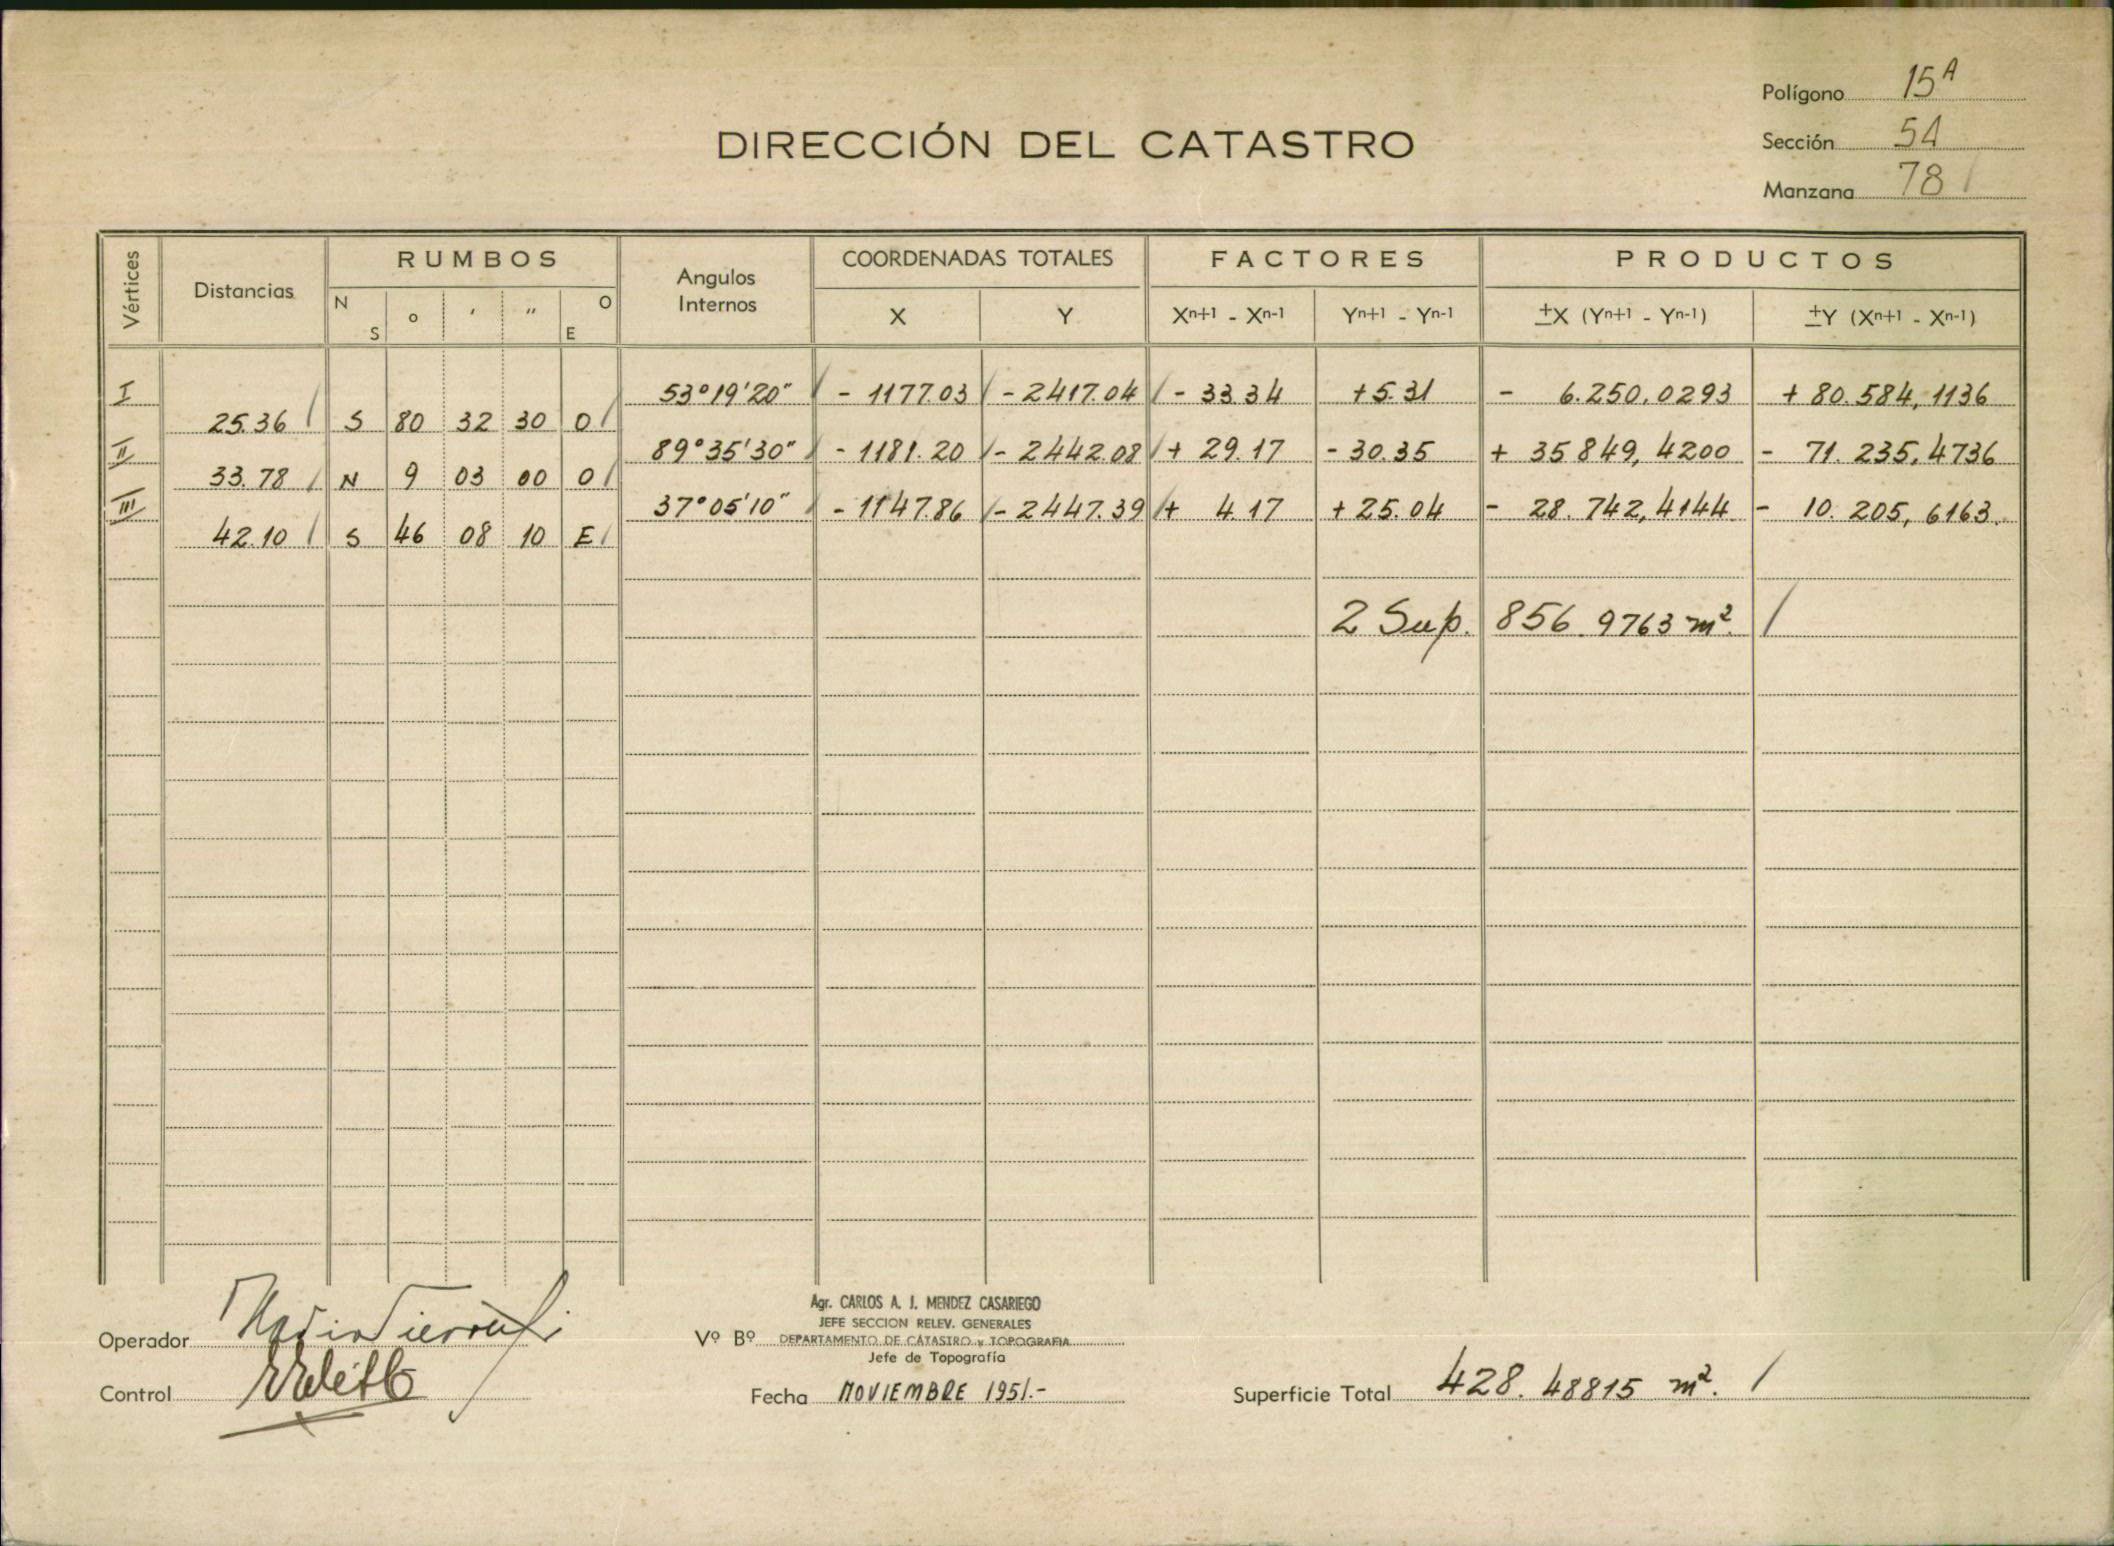 Polígono 15A
DIRECCIÓN DEL CATASTRO
Sección 54
Manzana 78
Vértices Distancias RUMBOS Angulos Internos COORDENADAS TOTALES FACTORES PRODUCTOS
N S ° ′ ″ O E X Y Xn+1 - Xn-1 Yn+1 - Yn-1 ±X (Yn+1 - Yn-1) ±Y (Xn+1 - Xn-1)
I 53°19'20" - 1177.03 - 2417.04 - 33.34 +5.31 - 6.250,0293 + 80.584,1136
25.36 S 80 32 30 O
II 89°35'30" - 1181.20 - 2442.08 + 29.17 - 30.35 + 35849,4200 - 71.235,4736
33.78 N 9 03 00 O
III 37°05'10" - 1147.86 - 2447.39 + 4.17 + 25.04 - 28.742,4144 - 10.205,6163
42.10 S 46 08 10 E
2 Sup. 856.9763 m².
Operador
Control
Agr. CARLOS A. J. MENDEZ CASARIEGO
JEFE SECCION RELEV. GENERALES
Vº Bº DEPARTAMENTO DE CATASTRO y TOPOGRAFIA
Jefe de Topografía
Fecha NOVIEMBRE 1951.-
Superficie Total 428.48815 m².